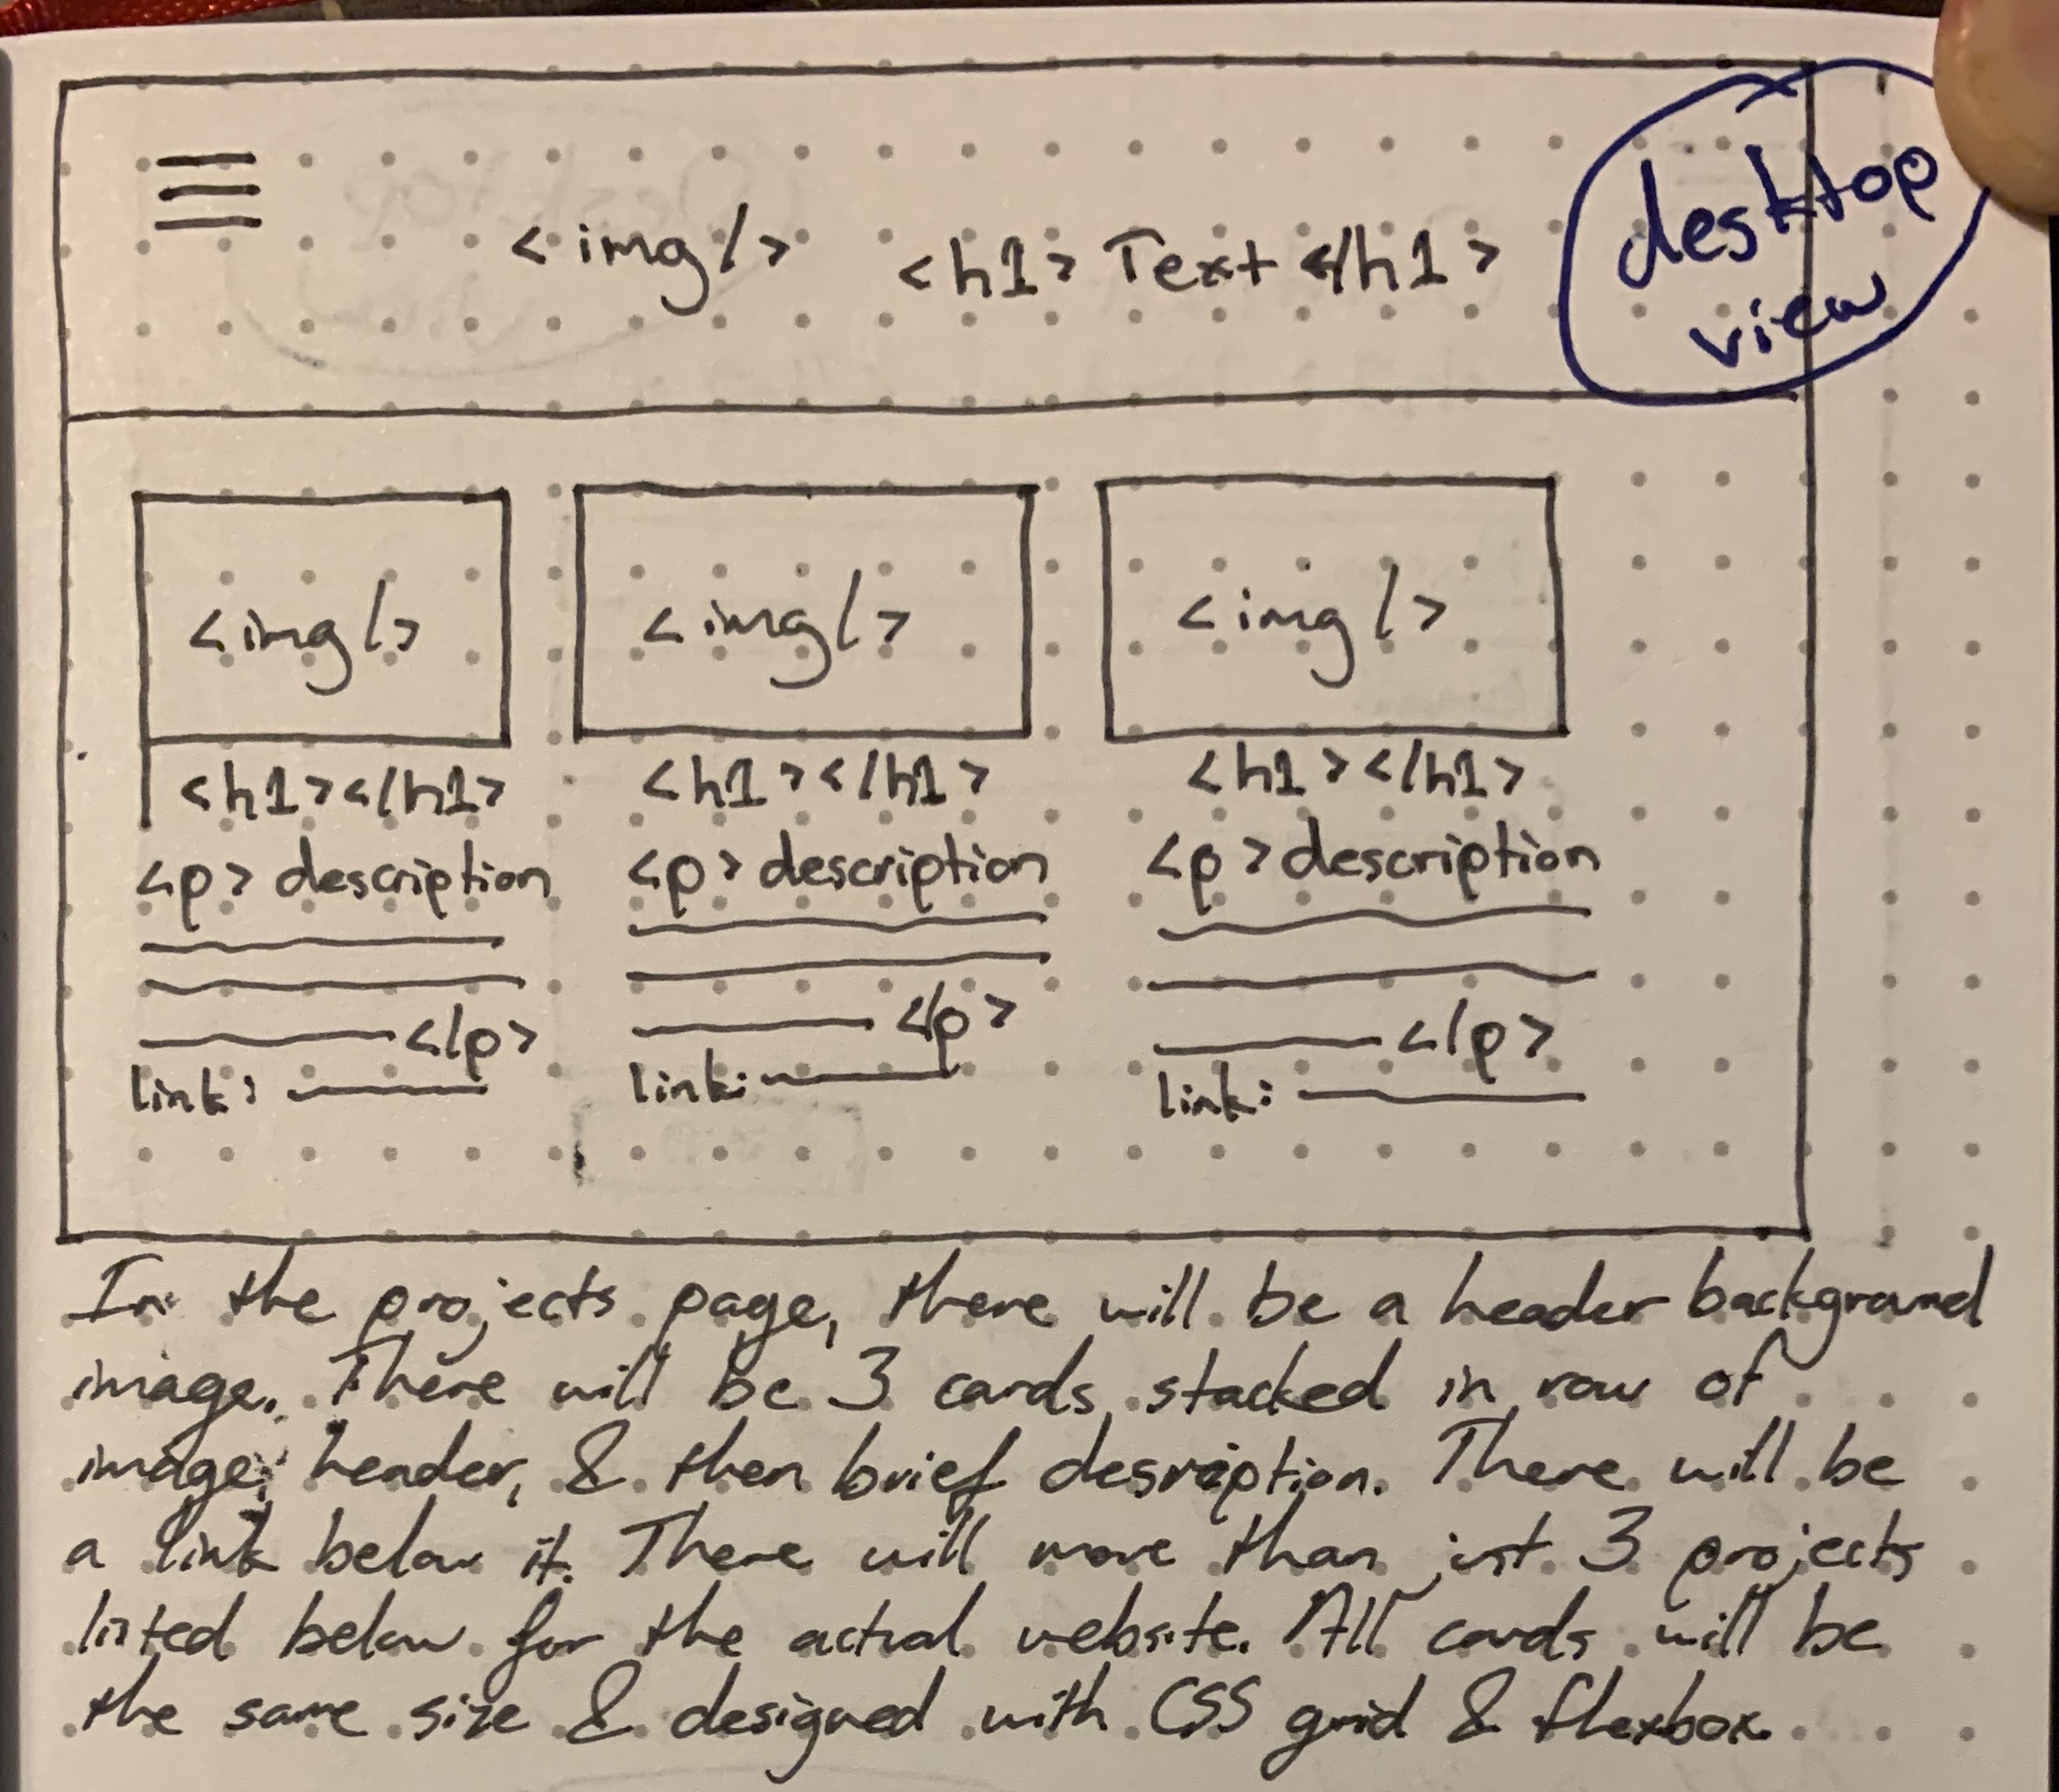 desktop
view
<img/> <h1> Text </h1>
<img/> <img/> <img/>
<h1></h1> <h1></h1> <h1></h1>
<p> description <p> description <p> description
</p> </p> </p>
link: link: link:
In the projects page, there will be a header background
image. There will be 3 cards stacked in row of
image, header, & then brief desription. There will be
a link below it. There will more than just 3 projects
listed below for the actual website. All cards will be
the same size & designed with CSS grid & flexbox.